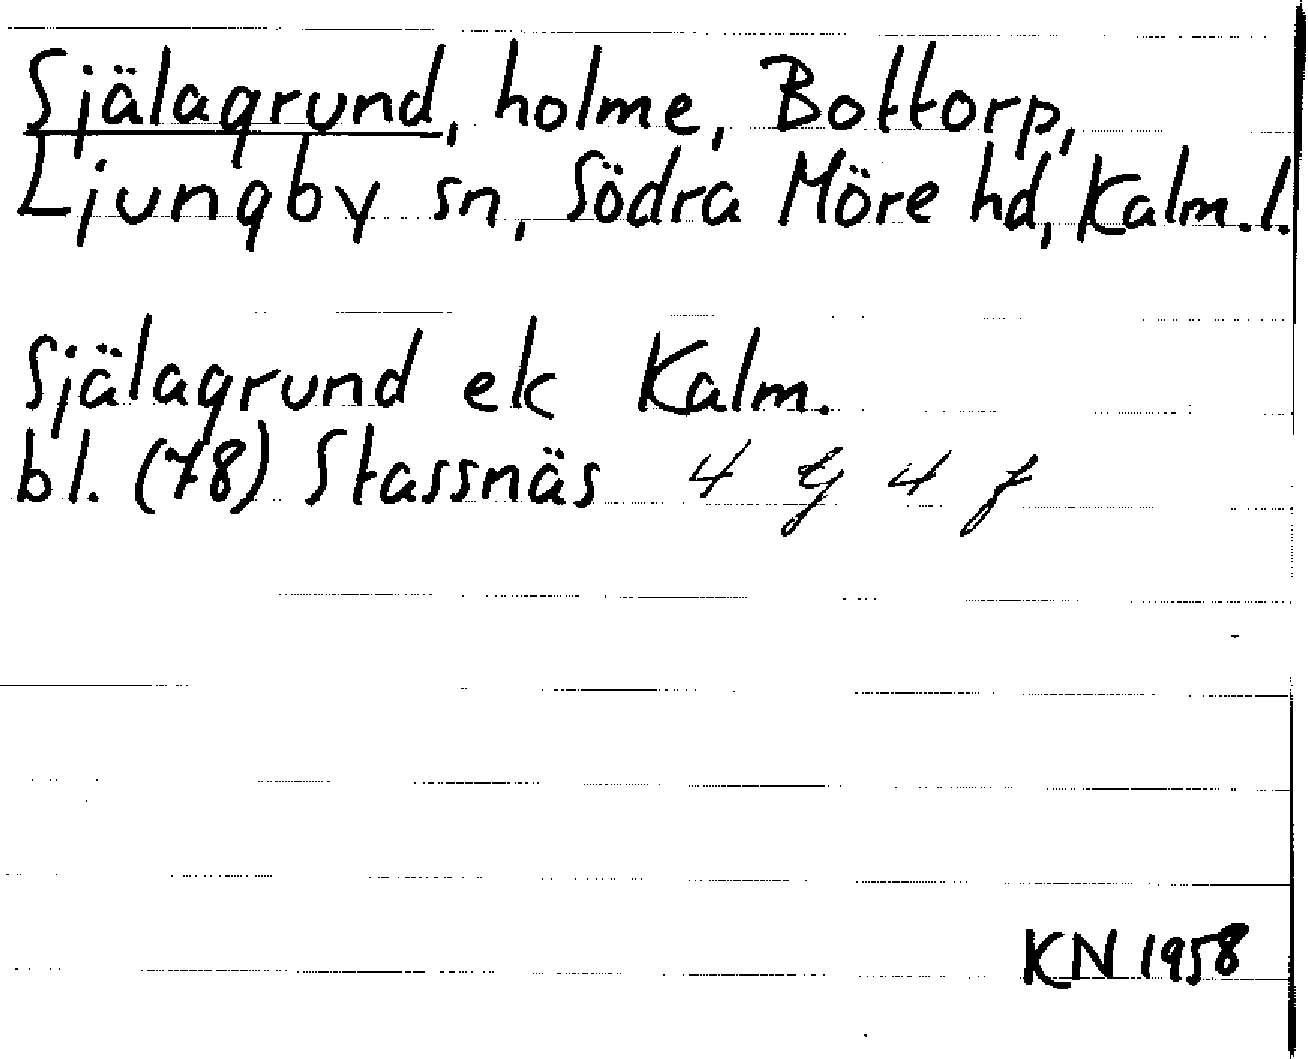 Själagrund, holme, Bottorp,
Ljungby sn, Södra Möre hd, Kalm. l.
Själagrund ek Kalm.
bl. (78) Stassnäs 4 G 4 f
KN 1958